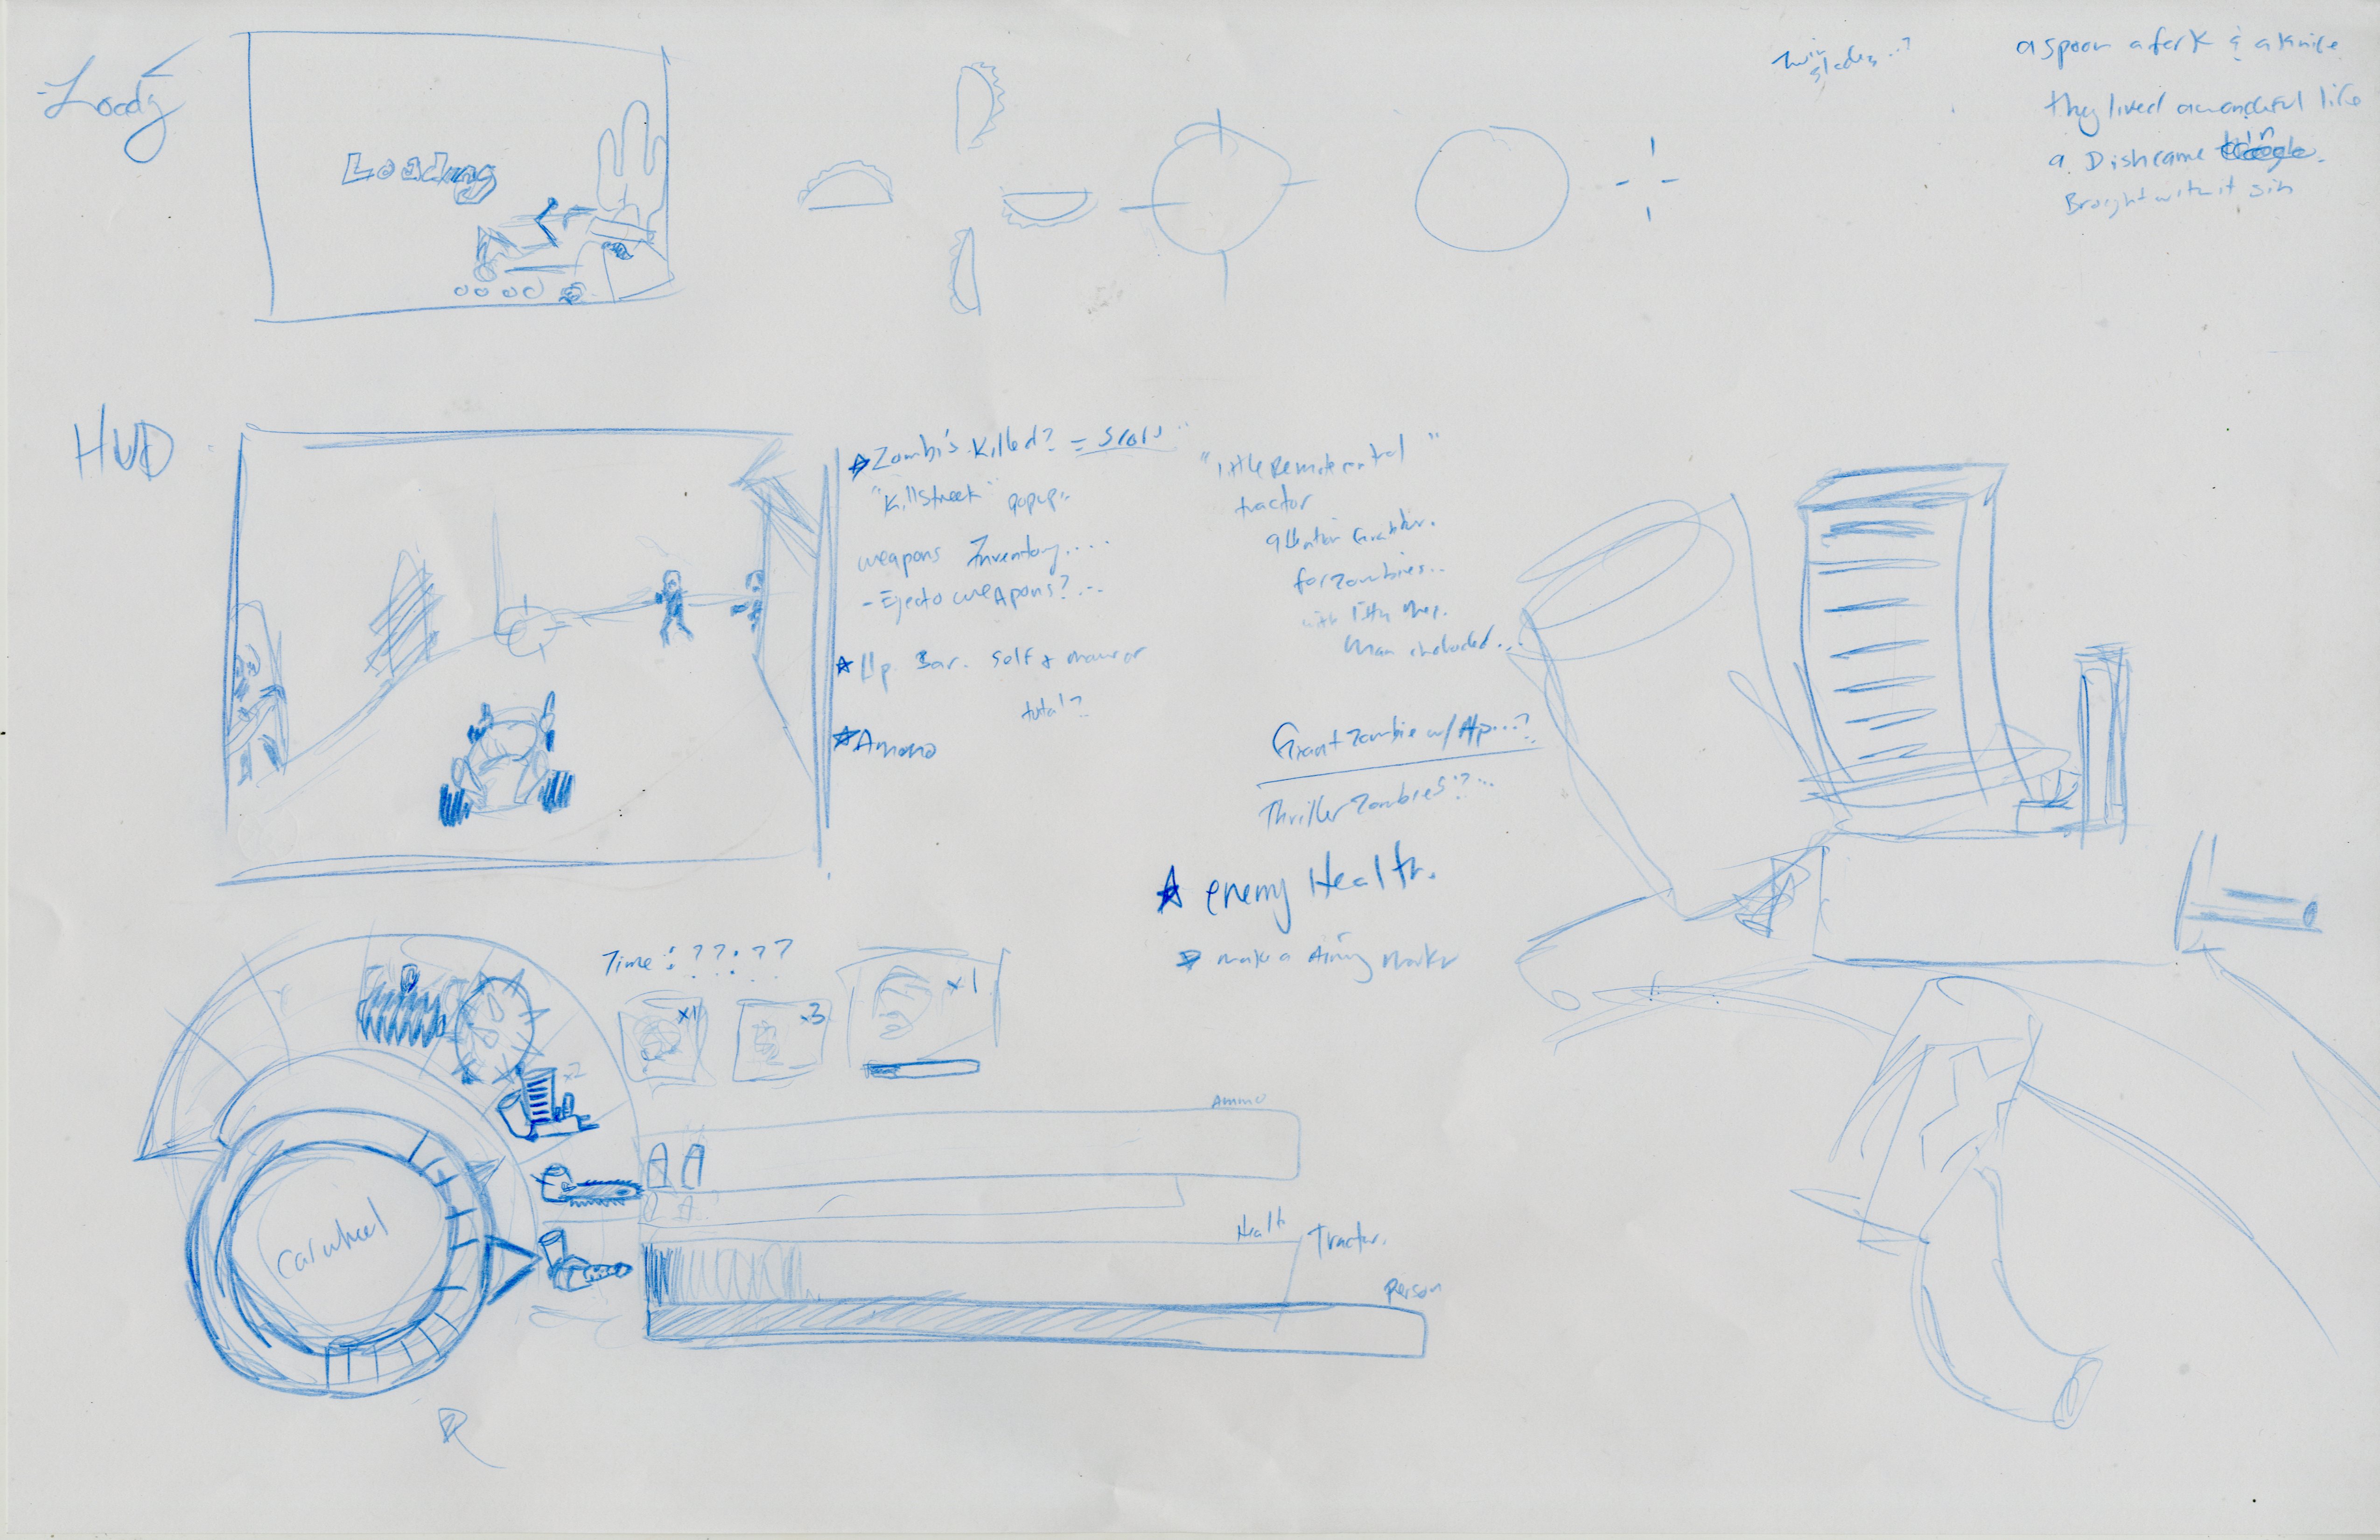 Loading
a spoon a fork & a knife
they lived a wonderful life
a Dish came in
Brought with it sin
HUD
★ Zombi's Killed? =
"Killstreek" popup..
weapons Inventory....
- Ejecto weapons?...
★ Hp Bar. Self &
total?
★ Ammo
"little Remote control"
tractor
for zombies..
with little
Man included...
Giant Zombie w/ Hp...?
Thriller Zombies??...
★ enemy Health.
make a Aiming Marker
Time: ??:??
x1
x3
x1
x2
Ammo
Health
Tractor.
Person
car wheel
R